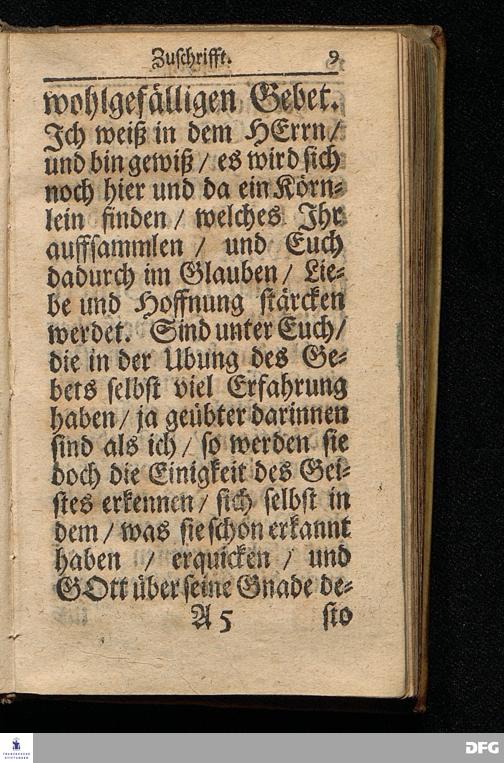 Zuschrifft. 9
wohlgefälligen Gebet.
Ich weiß in dem HErrn/
und bin gewiß / es wird sich
noch hier und da ein Körn-
lein finden / welches Ihr
auffsammlen / und Euch
dadurch im Glauben / Lie-
be und Hoffnung stärcken
werdet. Sind unter Euch/
die in der Ubung des Ge-
bets selbst viel Erfahrung
haben / ja geübter darinnen
sind als ich / so werden sie
doch die Einigkeit des Gei-
stes erkennen / sich selbst in
dem / was sie schon erkannt
haben / erquicken / und
GOtt über seine Gnade de-
A 5 sto
FRANCKESCHE STIFTUNGEN
DFG